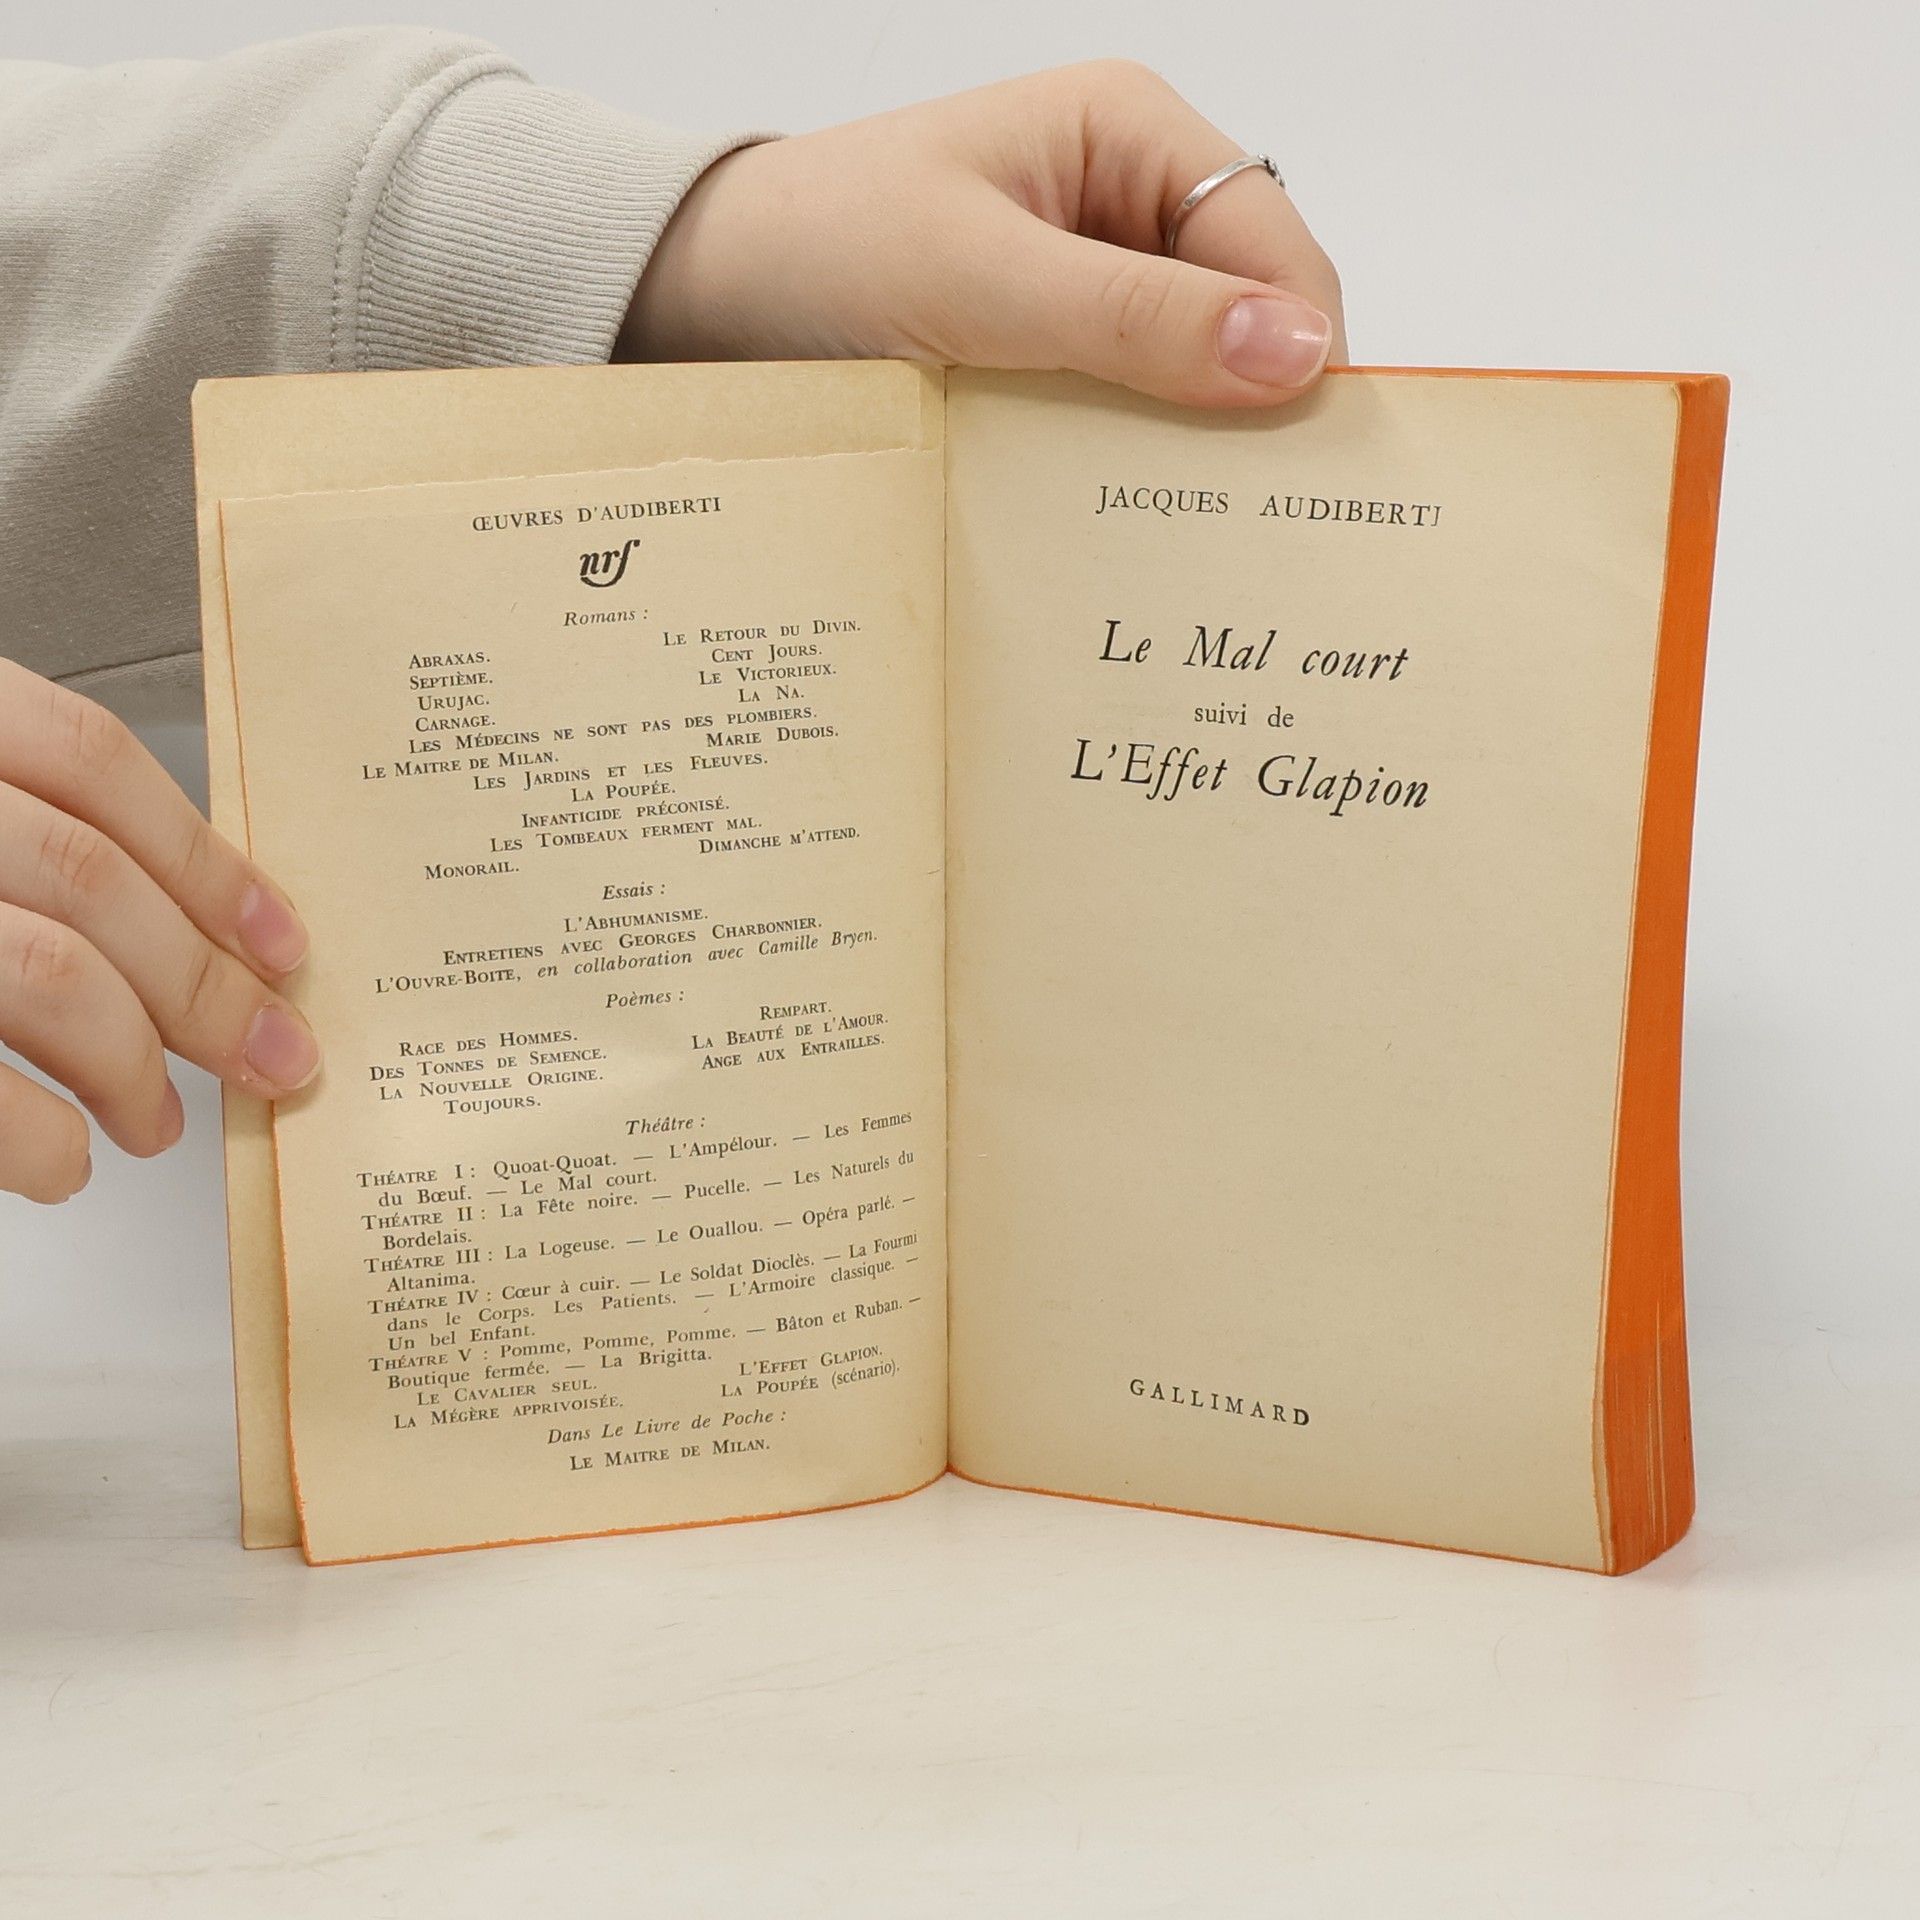 ŒUVRES D'AUDIBERTI
nrf
Romans :
ABRAXAS. LE RETOUR DU DIVIN.
SEPTIÈME. CENT JOURS.
URUJAC. LE VICTORIEUX.
CARNAGE. LA NA.
LES MÉDECINS NE SONT PAS DES PLOMBIERS.
LE MAITRE DE MILAN. MARIE DUBOIS.
LES JARDINS ET LES FLEUVES.
LA POUPÉE.
INFANTICIDE PRÉCONISÉ.
LES TOMBEAUX FERMENT MAL.
MONORAIL. DIMANCHE M'ATTEND.
Essais :
L'ABHUMANISME.
ENTRETIENS AVEC GEORGES CHARBONNIER.
L'OUVRE-BOITE, en collaboration avec Camille Bryen.
Poèmes :
RACE DES HOMMES. REMPART.
DES TONNES DE SEMENCE. LA BEAUTÉ DE L'AMOUR.
LA NOUVELLE ORIGINE. ANGE AUX ENTRAILLES.
TOUJOURS.
Théâtre :
THÉATRE I : Quoat-Quoat. — L'Ampélour. — Les Femmes
du Bœuf. — Le Mal court.
THÉATRE II : La Fête noire. — Pucelle. — Les Naturels du
Bordelais.
THÉATRE III : La Logeuse. — Le Ouallou. — Opéra parlé. —
Altanima.
THÉATRE IV : Cœur à cuir. — Le Soldat Dioclès. — La Fourmi
dans le Corps. Les Patients. — L'Armoire classique. —
Un bel Enfant.
THÉATRE V : Pomme, Pomme, Pomme. — Bâton et Ruban. —
Boutique fermée. — La Brigitta.
LE CAVALIER SEUL. L'EFFET GLAPION.
LA MÉGÈRE APPRIVOISÉE. LA POUPÉE (scénario).
Dans Le Livre de Poche :
LE MAITRE DE MILAN.
JACQUES AUDIBERTI
Le Mal court
suivi de
L'Effet Glapion
GALLIMARD